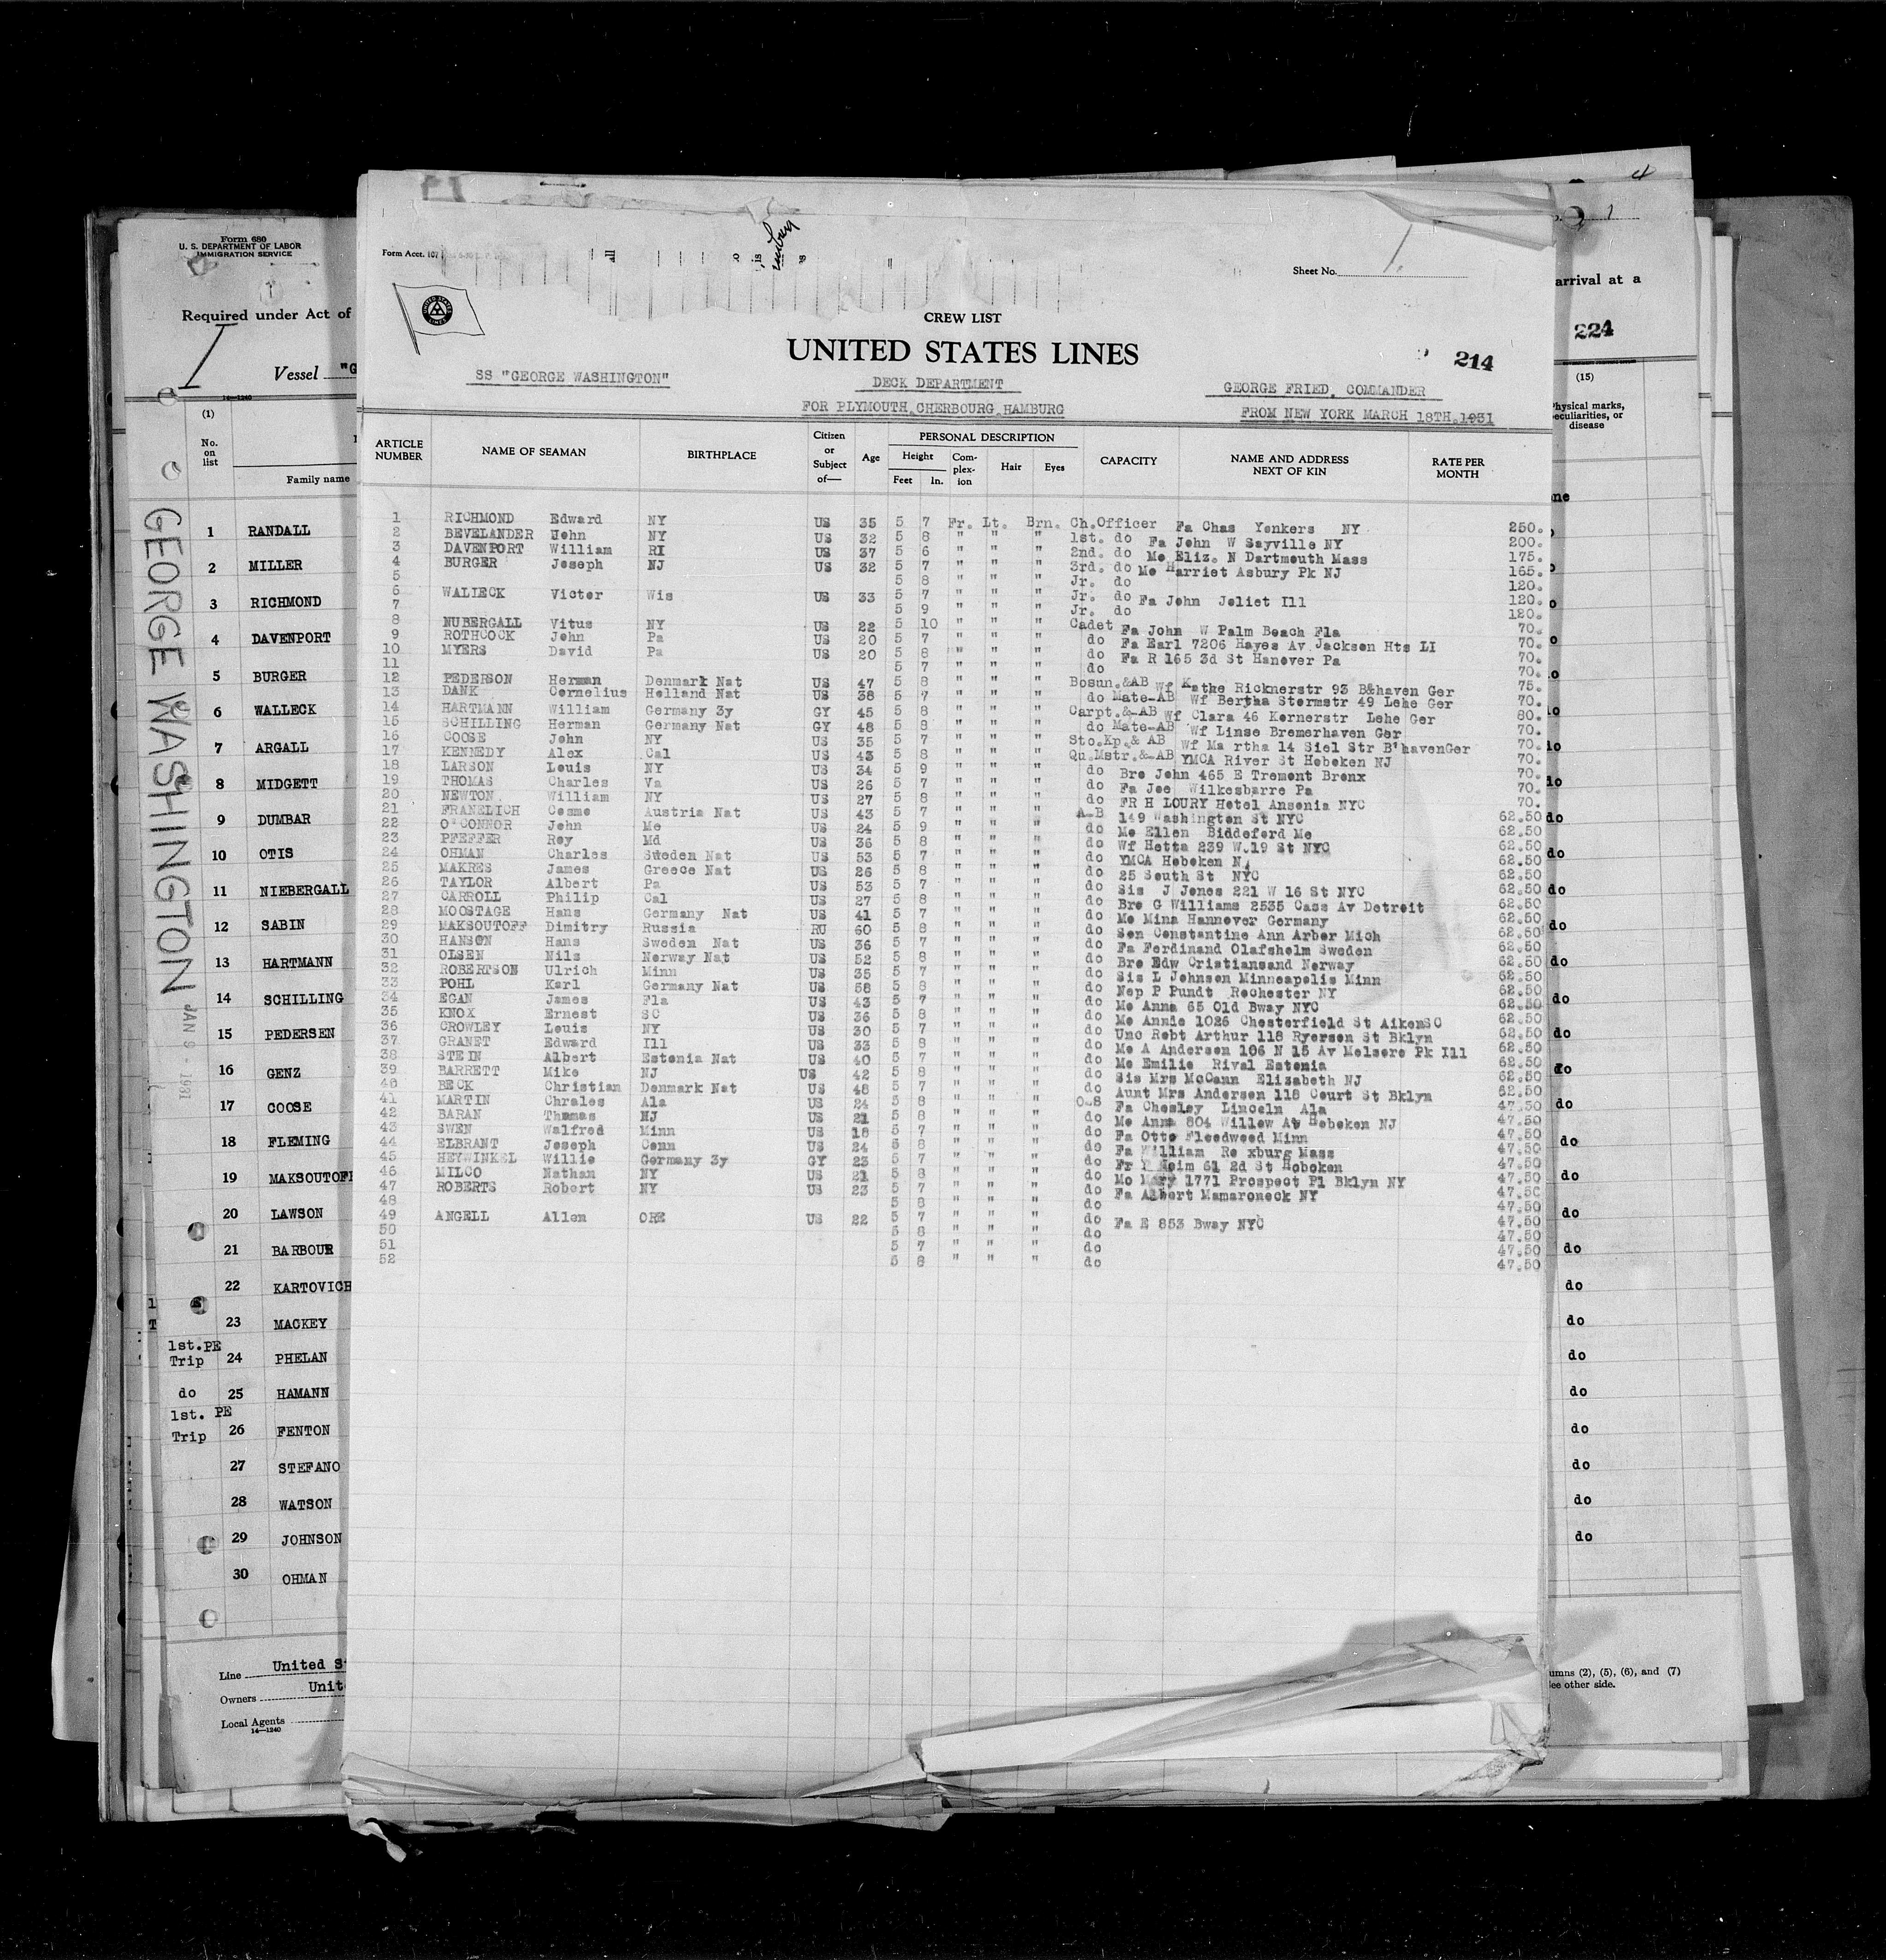 Form 680
U. S. DEPARTMENT OF LABOR
IMMIGRATION SERVICE
Required under Act of
Vessel "G
14—1240
(1)
No. on list
Family name
1 RANDALL
2 MILLER
3 RICHMOND
4 DAVENPORT
5 BURGER
6 WALLECK
7 ARGALL
8 MIDGETT
9 DUMBAR
10 OTIS
11 NIEBERGALL
12 SABIN
13 HARTMANN
14 SCHILLING
15 PEDERSEN
16 GENZ
17 COOSE
18 FLEMING
19 MAKSOUTOFF
20 LAWSON
21 BARBOUR
22 KARTOVICH
23 MACKEY
1st.PE Trip 24 PHELAN
do 25 HAMANN
1st. PE Trip 26 FENTON
27 STEFANO
28 WATSON
29 JOHNSON
30 OHMAN
Line United S
Owners Unit
Local Agents
14—1240
GEORGE WASHINGTON
JAN 9 - 1931
Form Acct. 107
Sheet No. 1.
CREW LIST
UNITED STATES LINES
214
SS "GEORGE WASHINGTON"
DECK DEPARTMENT
GEORGE FRIED, COMMANDER
FOR PLYMOUTH, CHERBOURG, HAMBURG
FROM NEW YORK MARCH 18TH, 1931
ARTICLE NUMBER NAME OF SEAMAN BIRTHPLACE Citizen or Subject of— Age PERSONAL DESCRIPTION Height Feet In. Complexion Hair Eyes CAPACITY NAME AND ADDRESS NEXT OF KIN RATE PER MONTH
1 RICHMOND Edward NY US 35 5 7 Fr. Lt. Brn. Ch.Officer Fa Chas Yonkers NY 250.
2 BEVELANDER John NY US 32 5 8 " " " 1st. do Fa John W Sayville NY 200.
3 DAVENPORT William RI US 37 5 6 " " " 2nd. do Mo Eliz. N Dartmouth Mass 175.
4 BURGER Joseph NJ US 32 5 7 " " " 3rd. do Mo Harriet Asbury Pk NJ 165.
5 5 8 " " " Jr. do 120.
6 WALLECK Victor Wis US 33 5 7 " " " Jr. do Fa John Joliet Ill 120.
7 5 9 " " " Jr. do 120.
8 NUBERGALL Vitus NY US 22 5 10 " " " Cadet Fa John W Palm Beach Fla 70.
9 ROTHCOCK John Pa US 20 5 7 " " " do Fa Earl 7206 Hayes Av Jackson Hts LI 70.
10 MYERS David Pa US 20 5 8 " " " do Fa R 165 3d St Hanover Pa 70.
11 5 7 " " " do 70.
12 PEDERSON Herman Denmark Nat US 47 5 8 " " " Bosun.&AB Wf Kathe Ricknerstr 93 B&haven Ger 75.
13 DANK Cornelius Holland Nat US 38 5 7 " " " do Mate-AB Wf Bertha Stormstr 49 Lehe Ger 70.
14 HARTMANN William Germany 3y GY 45 5 8 " " " Carpt.&-AB Wf Clara 46 Kornerstr Lehe Ger 80.
15 SCHILLING Herman Germany Nat GY 48 5 8 " " " do Mate-AB Wf Linse Bremerhaven Ger 70.
16 COOSE John NY US 35 5 7 " " " Sto.Kp.& AB Wf Ma rtha 14 Siel Str B'havenGer 70.
17 KENNEDY Alex Cal US 43 5 8 " " " Qu.Mstr.&-AB YMCA River St Hoboken NJ 70.
18 LARSON Louis NY US 34 5 9 " " " do Bro John 465 E Tremont Bronx 70.
19 THOMAS Charles Va US 26 5 7 " " " do Fa Joe Wilkesbarre Pa 70.
20 NEWTON William NY US 27 5 8 " " " do FR H LOURY Hotel Ansonia NYC 70.
21 FRANELICH Cosmo Austria Nat US 43 5 7 " " " A-B 149 Washington St NYC 62.50
22 O'CONNOR John Me US 24 5 9 " " " do Mo Ellen Biddeford Me 62.50
23 PFEFFER Roy Md US 36 5 8 " " " do Wf Hetta 239 W.19 St NYC 62.50
24 OHMAN Charles Sweden Nat US 53 5 7 " " " do YMCA Hoboken N 62.50
25 MAKRES James Greece Nat US 26 5 8 " " " do 25 South St NYC 62.50
26 TAYLOR Albert Pa US 53 5 7 " " " do Sis J Jones 221 W 16 St NYC 62.50
27 CARROLL Philip Cal US 27 5 8 " " " do Bro G Williams 2535 Cass Av Detroit 62.50
28 MOOSTAGE Hans Germany Nat US 41 5 7 " " " do Mo Mina Hannover Germany 62.50
29 MAKSOUTOFF Dimitry Russia RU 60 5 8 " " " do Son Constantine Ann Arbor Mich 62.50
30 HANSON Hans Sweden Nat US 36 5 7 " " " do Fa Ferdinand Olafsholm Sweden 62.50
31 OLSEN Nils Norway Nat US 52 5 8 " " " do Bro Edw Cristiansand Norway 62.50
32 ROBERTSON Ulrich Minn US 35 5 7 " " " do Sis L Johnson Minneapolis Minn 62.50
33 POHL Karl Germany Nat US 58 5 8 " " " do Nep P Pundt Rochester NY 62.50
34 EGAN James Fla US 43 5 7 " " " do Mo Anna 65 Old Bway NYC 62.50
35 KNOX Ernest SC US 36 5 8 " " " do Mo Annie 1026 Chesterfield St AikenSC 62.50
36 CROWLEY Louis NY US 30 5 7 " " " do Unc Robt Arthur 118 Ryerson St Bklyn 62.50
37 GRANET Edward Ill US 33 5 8 " " " do Mo A Anderson 106 N 15 Av Melsore Pk Ill 62.50
38 STEIN Albert Estonia Nat US 40 5 7 " " " do Mo Emilie Rival Estonia 62.50
39 BARRETT Mike NJ US 42 5 8 " " " do Sis Mrs McCann Elizabeth NJ 62.50
40 BECK Christian Denmark Nat US 48 5 7 " " " do Aunt Mrs Andersen 118 Court St Bklyn 62.50
41 MARTIN Chrales Ala US 24 5 8 " " " O-S Fa Chesley Lincoln Ala 47.50
42 BARAN Thomas NJ US 21 5 8 " " " do Mo Anna 804 Willow Av Hoboken NJ 47.50
43 SWEN Walfred Minn US 18 5 7 " " " do Fa Otto Floodwood Minn 47.50
44 ELBRANT Joseph Conn US 24 5 8 " " " do Fa William Ro xburg Mass 47.50
45 HEYWINKEL Willie Germany 3y GY 23 5 7 " " " do Fr Heim 61 2d St Hoboken 47.50
46 MILCO Nathan NY US 21 5 8 " " " do Mo Mary 1771 Prospect Pl Bklyn NY 47.50
47 ROBERTS Robert NY US 23 5 7 " " " do Fa Albert Mamaroneck NY 47.50
48 5 8 " " " do 47.50
49 ANGELL Allen ORE US 22 5 7 " " " do Fa E 853 Bway NYC 47.50
50 5 8 " " " do 47.50
51 5 7 " " " do 47.50
52 5 8 " " " do 47.50
4
1
arrival at a
224
(15)
Physical marks, peculiarities, or disease
do
do
do
do
do
do
do
do
do
do
do
do
do
do
do
do
do
do
do
do
do
umns (2), (5), (6), and (7)
see other side.